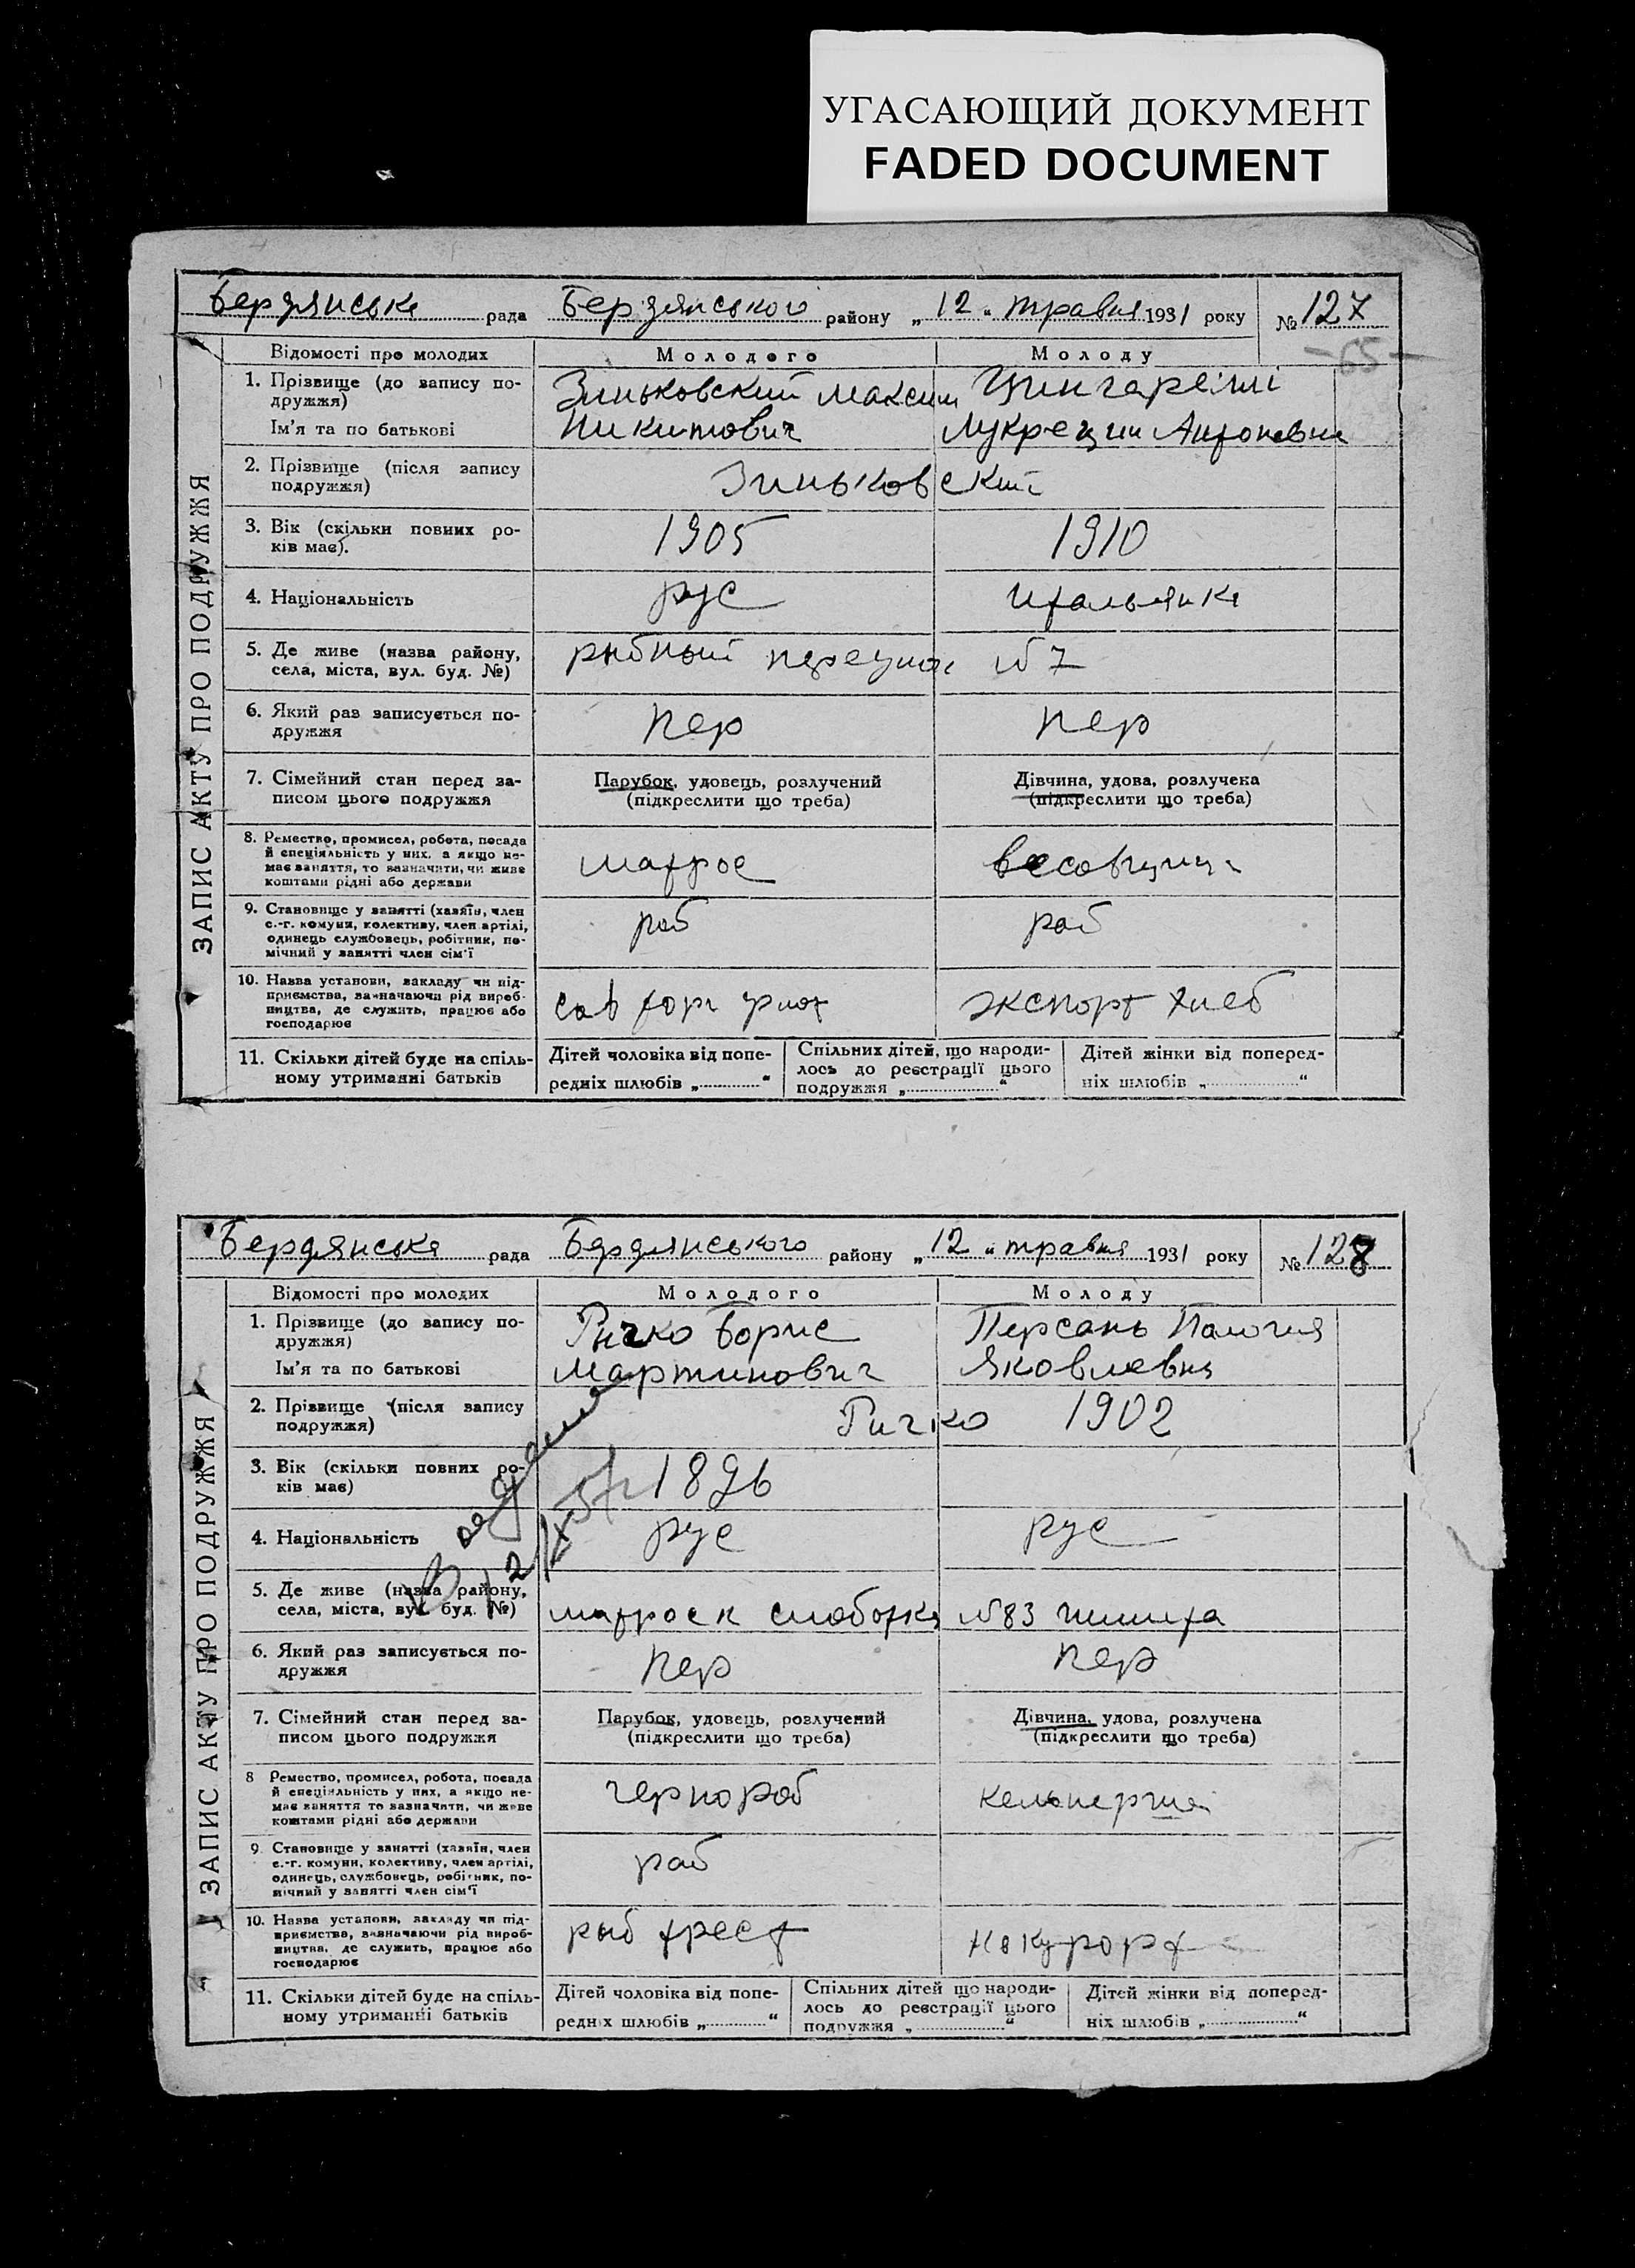 УГАСАЮЩИЙ ДОКУМЕНТ
FADED DOCUMENT
Бердянська рада Бердянського району „12“ травня 1931 року № 127
— 65 —
ЗАПИС АКТУ ПРО ПОДРУЖЖЯ
Відомості про молодих Молодого Молоду
1. Прізвище (до запису по-
дружжя)
Ім'я та по батькові
Зиньковский Максим
Никитович
Цингарелли
Лукреции Антоновна
2. Прізвище (після запису
подружжя)
Зиньковский
3. Вік (скільки повних ро-
ків має).
1905 1910
4. Національність
рус итальянка
5. Де живе (назва району,
села, міста, вул. буд. №)
рибный переулок №7
6. Який раз записується по-
дружжя
пер пер
7. Сімейний стан перед за-
писом цього подружжя
Парубок, удовець, розлучений
(підкреслити що треба)
Дівчина, удова, розлучена
(підкреслити що треба)
8. Ремество, промисел, робота, посада
й спеціяльність у них, а якщо не-
має заняття, то зазначити, чи живе
коштами рідні або держави
матрос весовщица
9. Становище у занятті (хазяїн, член
с.-г. комуни, колективу, член артілі,
одинець службовець, робітник, по-
мічний у занятті член сім'ї
раб раб
10. Назва установи, закладу чи під-
приємства, зазначаючи рід вироб-
ництва, де служить, працює або
господарює
сов торг флот экспорт хлеб
11. Скільки дітей буде на спіль-
ному утриманні батьків
Дітей чоловіка від попе-
редніх шлюбів „ “
Спільних дітей, що народи-
лось до реєстрації цього
подружжя „ “
Дітей жінки від поперед-
ніх шлюбів „ “
Бердянська рада Бердянського району „12“ травня 1931 року № 128
ЗАПИС АКТУ ПРО ПОДРУЖЖЯ
Відомості про молодих Молодого Молоду
1. Прізвище (до запису по-
дружжя)
Ім'я та по батькові
Ричко Борис
Мартинович
Персань
Яковлевна
2. Прізвище (після запису
подружжя)
Ричко 1902
3. Вік (скільки повних ро-
ків має)
1896
4. Національність
рус рус
5. Де живе (назва району,
села, міста, вул. буд. №)
матросск слободка №83
6. Який раз записується по-
дружжя
пер пер
7. Сімейний стан перед за-
писом цього подружжя
Парубок, удовець, розлучений
(підкреслити що треба)
Дівчина, удова, розлучена
(підкреслити що треба)
8 Ремество, промисел, робота, посада
й спеціяльність у них, а якщо не-
має заняття то зазначити, чи живе
коштами рідні або держави
чернораб кельнерша
9. Становище у занятті (хазяїн, член
с.-г. комуни, колективу, член артілі,
одинець, службовець, робітник, по-
мічний у занятті член сім'ї
раб
10. Назва установи, закладу чи під-
приємства, зазначаючи рід вироб-
ництва, де служить, працює або
господарює
рыб трест на курорт
11. Скільки дітей буде на спіль-
ному утриманні батьків
Дітей чоловіка від попе-
редніх шлюбів „ “
Спільних дітей що народи-
лось до реєстрації цього
подружжя „ “
Дітей жінки від поперед-
ніх шлюбів „ “